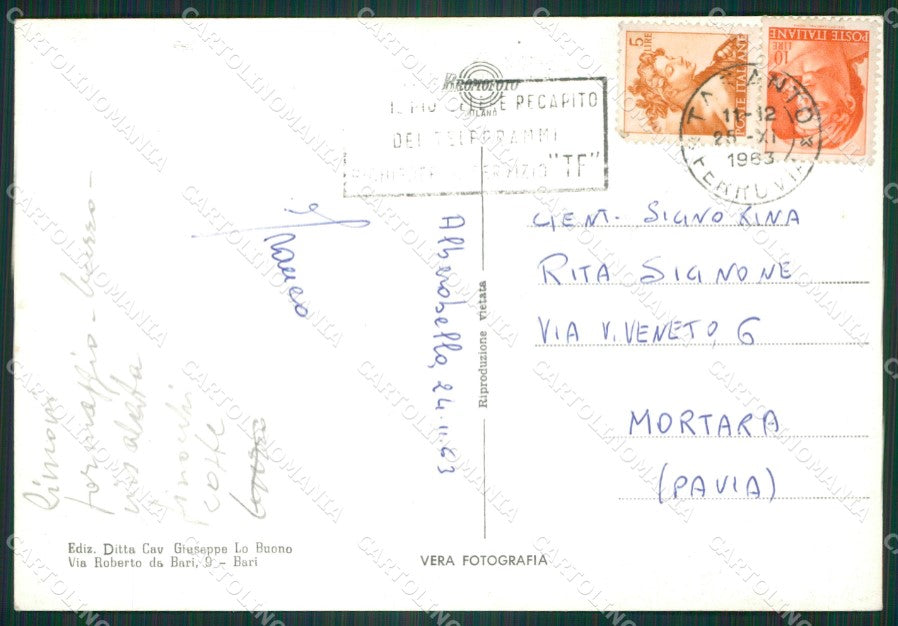 5
LIRE
POSTE ITALIANE
10
LIRE
POSTE ITALIANE
TARANTO
11-12
XI
1963
FERROVIA
KROMOFOTO
MILANO
IL PIÙ CELERE RECAPITO
DEI TELEGRAMMI
RICHIEDETE IL SERVIZIO "TF"
GENT. SIGNORINA
RITA SIGNONE
VIA V. VENETO, 6
MORTARA
(PAVIA)
Franco
Alberobello, 24.11.63
Riproduzione vietata
limoni
formaggio - burro -
insalata
finocchi
cotte
Ediz. Ditta Cav Giuseppe Lo Buono
Via Roberto da Bari, 9 - Bari
VERA FOTOGRAFIA
CARTOLINOMANIA